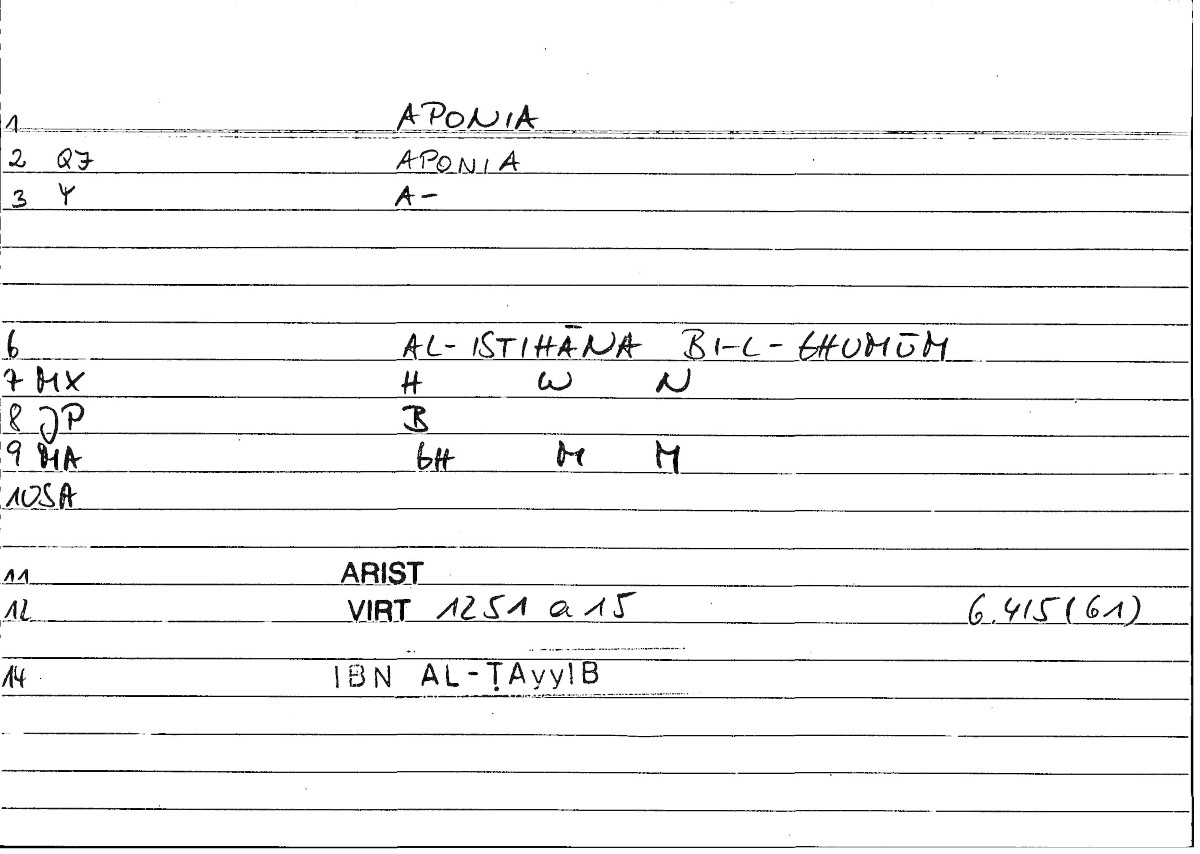 1 APONIA
2 Q7 APONIA
3 Y A-
6 AL-ISTIHĀNA BI-L-GHUMŪM
7 MX H W N
8 JP B
9 MA GH M M
10 SA
11 ARIST
12 VIRT 1251 a 15 6.415(61)
14 IBN AL-ṬAyyIB